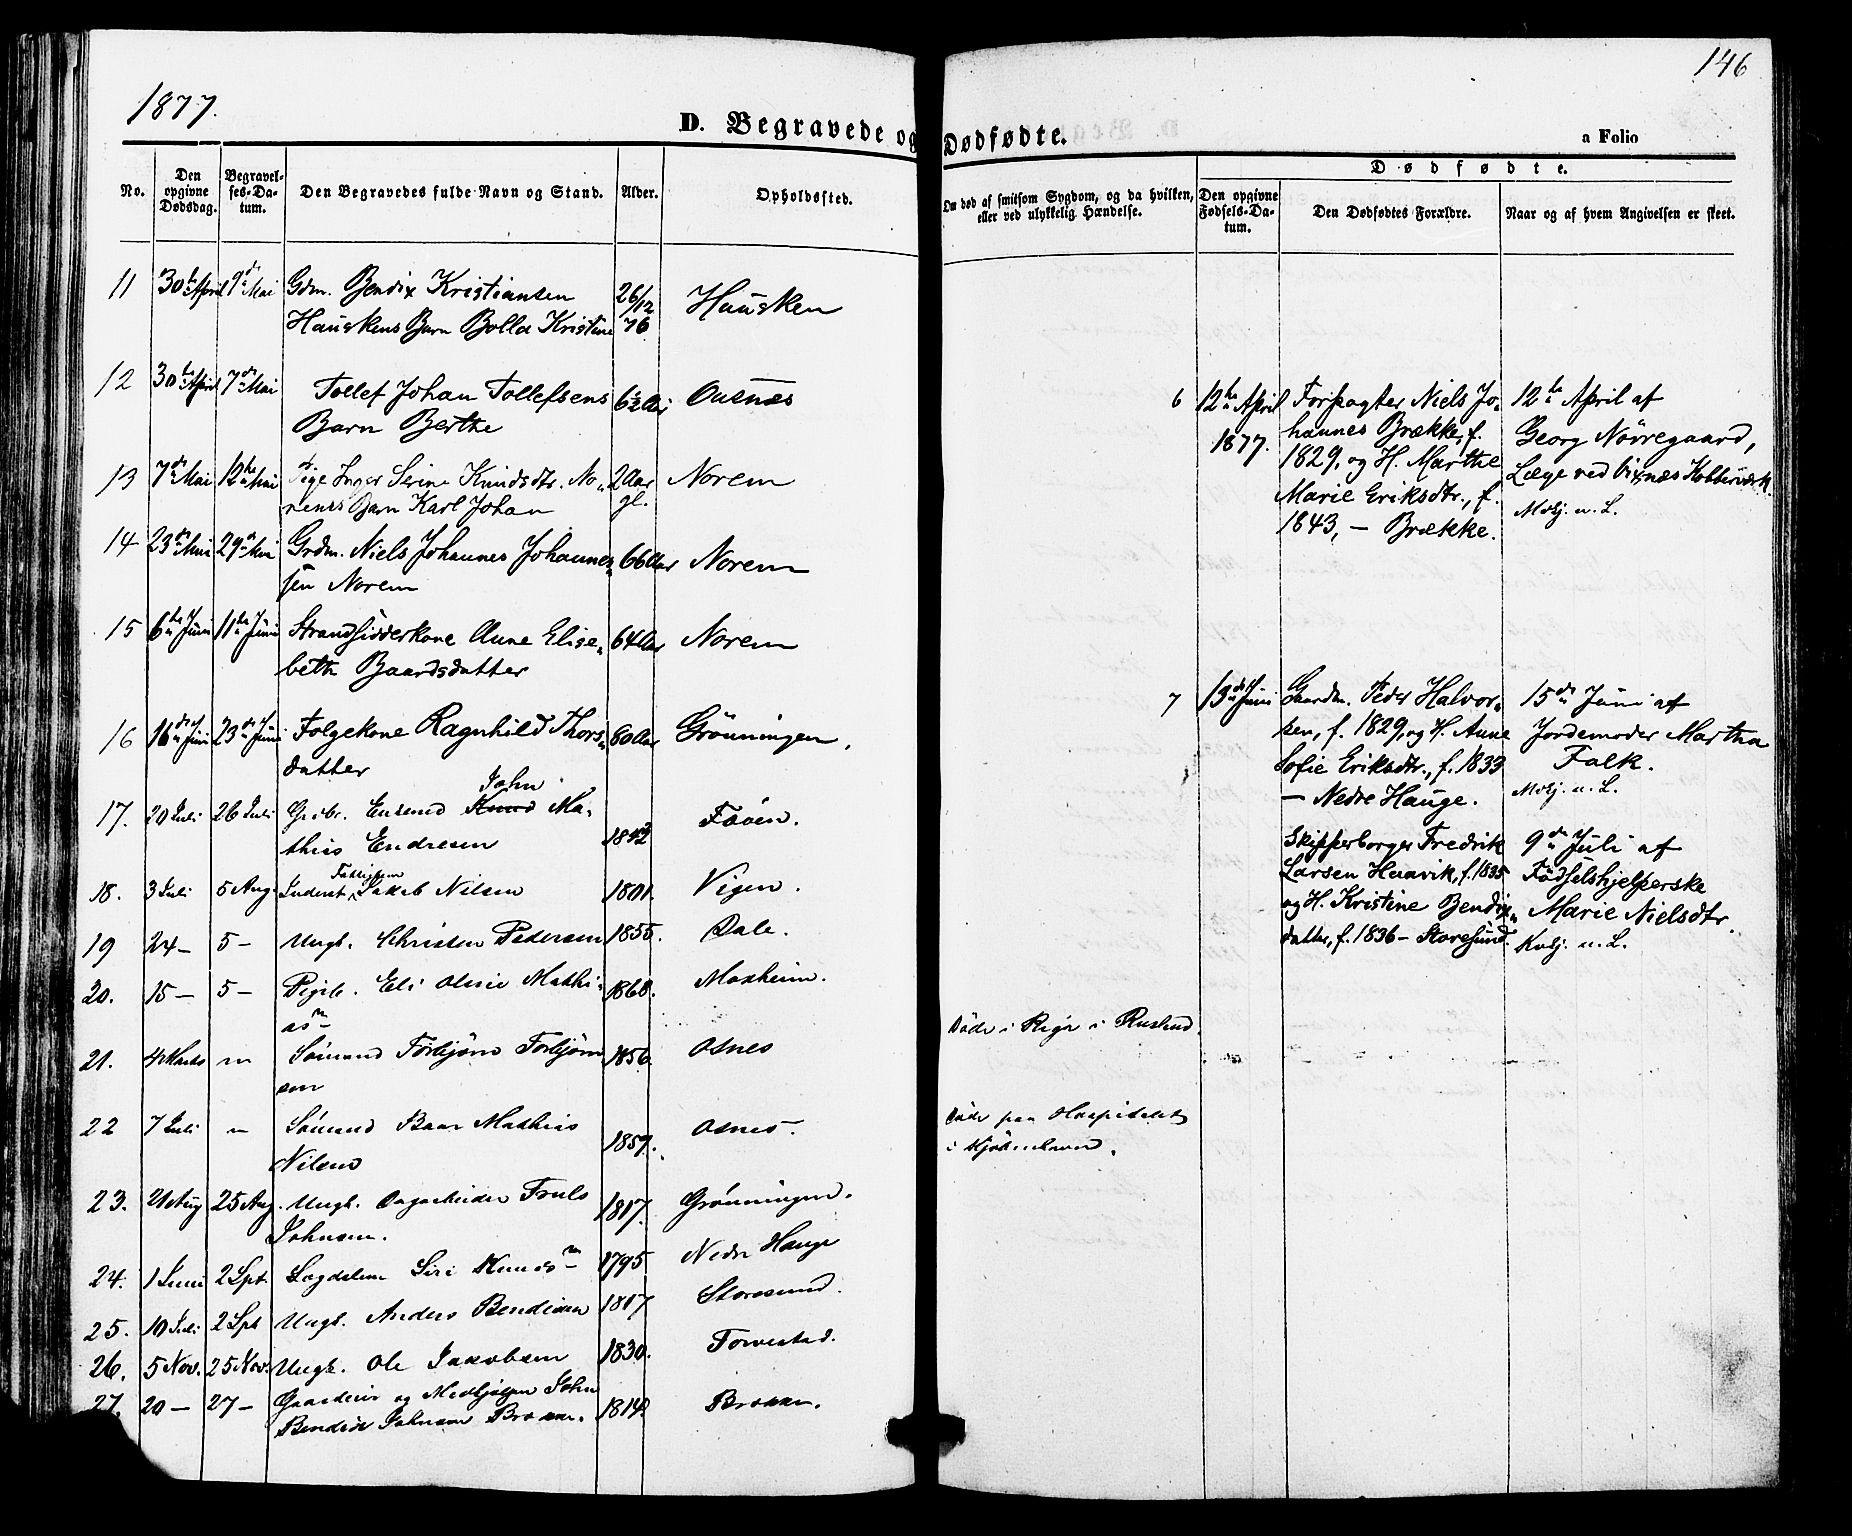 1877.
146
D. Begravede og Dødfødte.
a Folio
No.
Den opgivne Dødsdag.
Begravelses-Datum.
Den Begravedes fulde Navn og Stand.
Alder.
Opholdssted.
Om død af smitsom Sygdom, og da hvilken, eller ved ulykkelig Hændelse.
Dødfødte.
Den opgivne Fødsels-Datum.
Den Dødfødtes Forældre.
Naar og af hvem Angivelsen er skeet.
11 30te April 9de Mai Gdm. Bendix Kristiansen 26/12 Hausken
Hauskens Barn Bolla Kristine 76
12 30te April 7de Mai Tollef Johan Tollefsens Ousnes
Barn Berthe
13 7de Mai 12te Mai Pige Inger Serine Knudsdtr. No- 2 Aar Norem
rems Barn Karl Johan gl.
14 23de Mai 29de Mai Grdm. Niels Johannes Johannes- 66 Aar Norem
sen Norem
15 6te Juni 11te Juni Strandsidderkone Anne Elise- 64 Aar Norem
beth Baardsdatter
16 16de Juni 23de Juni Folgekone Ragnhild Thors- 60 Aar Grönningen.
datter
John
17. 20 Juli 26 Juli Knud Ma-
thias Endresen Fööen.
18. 3 Juli 5 Aug. Inderst Fattiglem Jakob Nilsen 1801. Vigen.
19 24 – 5 – Ungk. Christen Pedersen 1855. Dale.
20. 15 – 5 – Pigeb. Eli Olene Mathi- 1868.
asn
21. 4 Marts " Sömand Torbjörn Torbjörn- 1856. Osnes Döde i Riga i Rusland.
sen
22 7 Juli " Sömand Baar Mathias 1857. Osnes. Döde paa Hospitalet
Nilsen i Kjöbenhavn.
23. 21 Aug 25 Aug. Ungk. Dagarbeider Truls 1817. Grönningen.
Johnsen.
24. 1 Juni 2 Spt. Lægdslem Siri Knudsn 1795 Nedre Hauge
25. 10 Juli 2 Spt Ungk. Anders Bendixen 1817 Storesund.
26. 5 Nov. 25 Nov. Ungk. Ole Jakobsen 1830. Torvestad.
27. 20 – 27 – Gaardeier og Medhjælper John 1814.
Bendix Johnsen
6 12te April 1877. Forpagter Niels Jo- 12te April af
hannes Brække, f. Georg Nörregaard,
1829, og H. Marthe Læge ved Vixnæs Kobberværk.
Marie Eriksdtr., f.
1843, – Brække.
7 13de Juni Gaardm. Peder Halvor- 15de Juni af
sen, f. 1829, og H. Anne Jordemoder Martha
Sofie Eriksdtr., f. 1833 Falk.
– Nedre Hauge.
Skipperborger Fredrik 9de Juli af
Larsen Haavik, f. 1835 Födselshjelperske
og H. Kristine Bendix- Marie Nielsdtr.
datter, f. 1836 – Storesund.